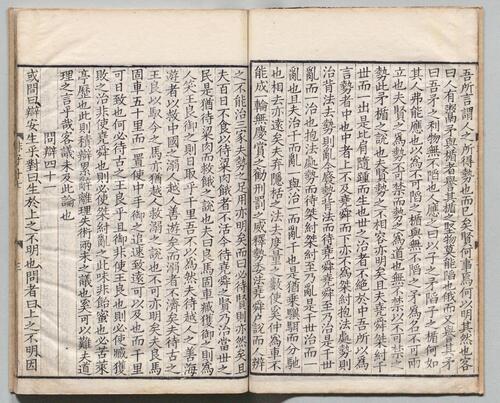 吾所言謂人之所得勢也而已矣賢何事焉何以明其然也客
曰人有鬻矛與楯者譽其楯之堅物莫能陷也俄而又譽其矛
曰吾矛之利物無不陷也人應之曰以子之矛陷子之楯何如
其人弗能應也以為不可陷之楯與無不陷之矛為名不可兩
立也夫賢之為勢不可禁而勢之為道也無不禁以不可禁之
勢此矛楯之說也夫賢勢之不相容亦明矣且夫堯舜桀紂千
世而一出是比肩隨踵而生也世之治者不絕於中吾所以為
言勢者中也中者上不及堯舜而下亦不為桀紂抱法處勢則
治背法去勢則亂今廢勢背法而待堯舜堯舜至乃治是千世
亂而一治也抱法處勢而待桀紂桀紂至乃亂是千世治而一
亂也且夫治千而亂一與治一而亂千也是猶乘驥駬而分馳
也相去亦遠矣夫棄隱栝之法去度量之數使奚仲為車不
能成一輪無慶賞之勸刑罰之威釋勢委法堯舜戶說而人辨
之不能治三家夫勢之足用亦明矣而曰必待賢則亦然矣且
夫百日不食以待粱肉餓者不活今待堯舜之賢乃治當世之
民是猶待粱肉而救餓之說也夫曰良馬固車臧獲御之則為
人笑王良御之則日取乎千里吾不以為然夫待越人之善海
游者以救中國之溺人越人善游矣而溺者不濟矣夫待古之
王良以馭今之馬亦猶越人救溺之說也不可亦明矣夫良馬
固車五十里而一置使中手御之追速致遠可以及也而千里
可日致也何必待古之王良乎且御非使王良也則必使臧獲
敗之治非使堯舜也則必使桀紂亂之此味非飴蜜也必苦菜
亭歷也此則積辯累辭離理失術兩末之議也奚可以難夫道
理之言乎哉客議未及此論也
問辯四十一
或問曰辯安生乎對曰生於上之不明也問者曰上之不明因